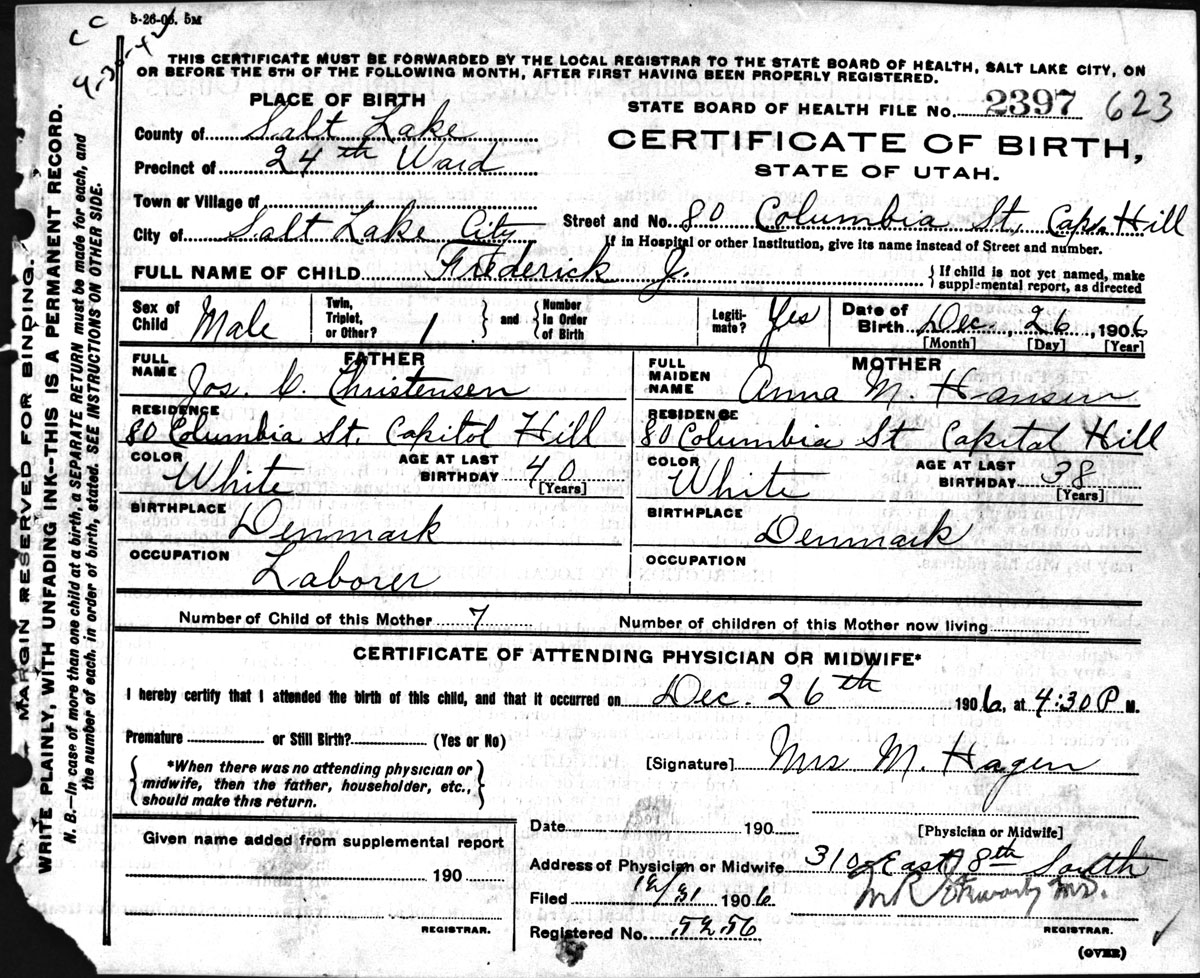 5-26-06. 5M
C C
THIS CERTIFICATE MUST BE FORWARDED BY THE LOCAL REGISTRAR TO THE STATE BOARD OF HEALTH, SALT LAKE CITY, ON
OR BEFORE THE 5TH OF THE FOLLOWING MONTH, AFTER FIRST HAVING BEEN PROPERLY REGISTERED.
PLACE OF BIRTH
STATE BOARD OF HEALTH FILE No. 2397 623
County of Salt Lake
CERTIFICATE OF BIRTH,
Precinct of 24th Ward
STATE OF UTAH.
Town or Village of
Street and No. 80 Columbia St, Hill
City of Salt Lake City
If in Hospital or other Institution, give its name instead of Street and number.
FULL NAME OF CHILD Frederick J.
{ If child is not yet named, make
supplemental report, as directed
Sex of Child Male
Twin, Triplet, or Other? 1 } and { Number In Order of Birth
Legiti-mate? Yes
Date of Birth Dec, 26, 1906
[Month] [Day] [Year]
FATHER
FULL NAME Jos. C. Christensen
MOTHER
FULL MAIDEN NAME Anna M. Hansen
RESIDENCE
80 Columbia St. Capitol Hill
RESIDENCE
80 Columbia St Capital Hill
COLOR White
AGE AT LAST BIRTHDAY 40
[Years]
COLOR White
AGE AT LAST BIRTHDAY 38
[Years]
BIRTHPLACE Denmark
BIRTHPLACE Denmark
OCCUPATION Laborer
OCCUPATION
Number of Child of this Mother 7
Number of children of this Mother now living
CERTIFICATE OF ATTENDING PHYSICIAN OR MIDWIFE*
I hereby certify that I attended the birth of this child, and that it occurred on Dec. 26th 1906, at 4:30 P M.
Premature or Still Birth? (Yes or No)
{ *When there was no attending physician or
midwife, then the father, householder, etc.,
should make this return. }
[Signature] Mrs M. Hagen
Date 190
[Physician or Midwife]
Given name added from supplemental report
190
REGISTRAR.
Address of Physician or Midwife 310 East 8th South
Filed 12/31 1906
M.D.
Registered No. 5256
REGISTRAR.
(OVER)
MARGIN RESERVED FOR BINDING.
WRITE PLAINLY, WITH UNFADING INK--THIS IS A PERMANENT RECORD.
N. B.—In case of more than one child at a birth, a SEPARATE RETURN must be made for each, and
the number of each, in order of birth, stated. SEE INSTRUCTIONS ON OTHER SIDE.